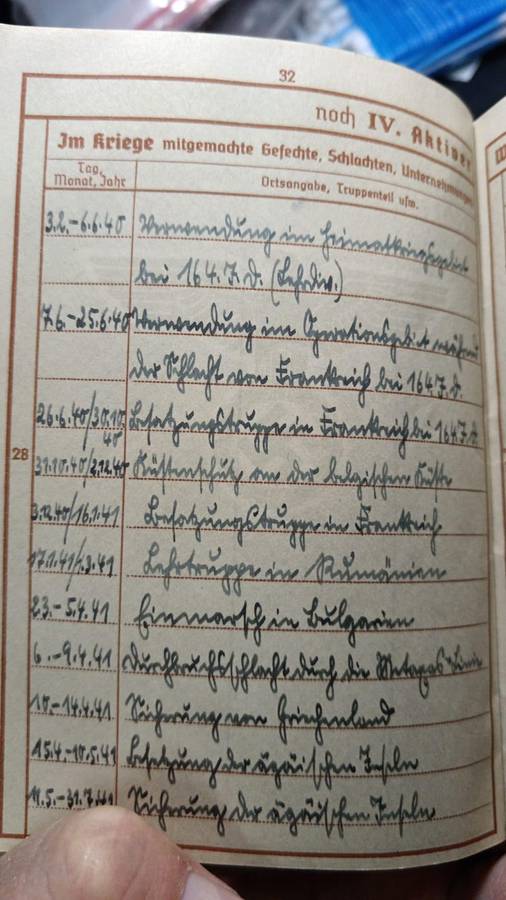 32
noch IV. Aktiver
Im Kriege mitgemachte Gefechte, Schlachten, Unternehmungen
Tag, Monat, Jahr
Ortsangabe, Truppenteil usw.
3.2.-6.6.40 Verwendung im Heimatkriegsgebiet
bei 164. J. D. (Lehrdiv.)
7.6.-25.6.40 Verwendung im Operationsgebiet während
der Schlacht von Frankreich bei 164. J. D.
26.6.40/30.10.40 Besatzungstruppe in Frankreich bei 164. J. D.
28
31.10.40/2.12.40 Küstenschutz an der belgischen Küste
3.12.40/16.1.41 Besatzungstruppe in Frankreich
17.1.41/1.3.41 Lehrtruppe in Rumänien
2.3.-5.4.41 Einmarsch in Bulgarien
6.-9.4.41 Durchbruchsschlacht durch die Metaxas-Linie
10.-14.4.41 Sicherung von Griechenland
15.4.-10.5.41 Besetzung der ägäischen Inseln
11.5.-31.7.41 Sicherung der ägäischen Inseln